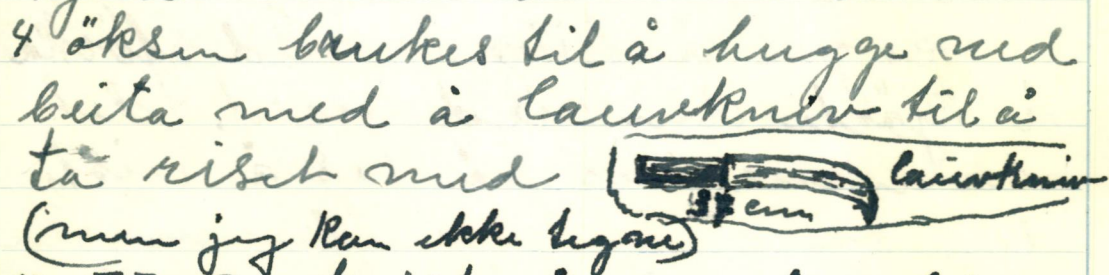 4 öksen brukes til å hugge ned
beita med å lauvkniv til å
ta riset med
lauvkniv
37 cm
(men jeg kan ikke tegne)